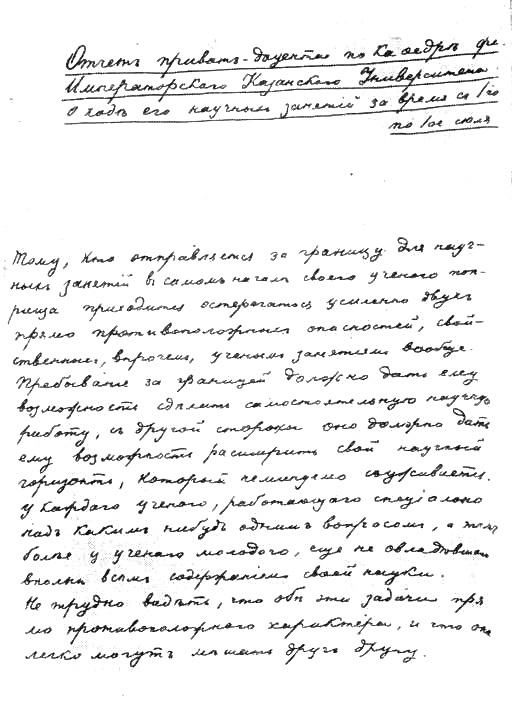 Отчетъ приватъ-доцента по кафедрѣ фи
Императорскаго Казанскаго Университета
о ходѣ его научныхъ занятій за время съ 1го
по 1ое июля
Тому, кто отправляется за границу для науч-
ныхъ занятій въ самомъ началѣ своего ученого поп-
рища приходится остерегаться усиленно двухъ
прямо противоположныхъ опасностей, свой-
ственныхъ, впрочемъ, ученымъ занятіямъ вообще.
Пребываніе за границей должно дать ему
возможность сдѣлать самостоятельную научную
работу, съ другой стороны оно должно дать
ему возможность расширить свой научный
горизонтъ, который неминуемо съуживается
у каждаго ученого, работающаго спеціально
надъ какимъ нибудь однимъ вопросомъ, а тѣмъ
болѣе у ученаго молодого, еще не овладѣвшаго
вполнѣ всѣмъ содержаніемъ своей науки.
Не трудно видѣть, что обѣ эти задачи пря
мо противоположного характера, и что онѣ
легко могутъ мѣшать другъ другу.